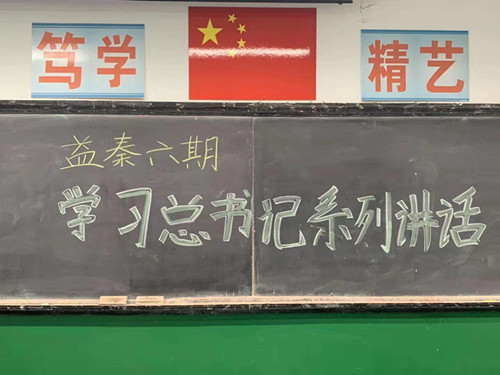 笃学 精艺
益秦六期
学习总书记系列讲话